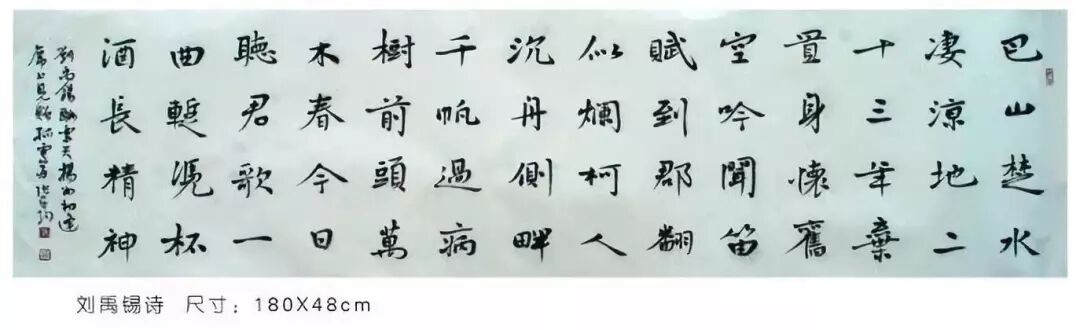 巴山楚水
凄涼地二
十三年棄
置身懷舊
空吟聞笛
賦到郡翻
似爛柯人
沉舟側畔
千帆過病
樹前頭萬
木春今日
聽君歌一
曲暫憑杯
酒長精神
劉禹錫酬樂天揚州初逢
席上見贈
刘禹锡诗 尺寸：180X48cm